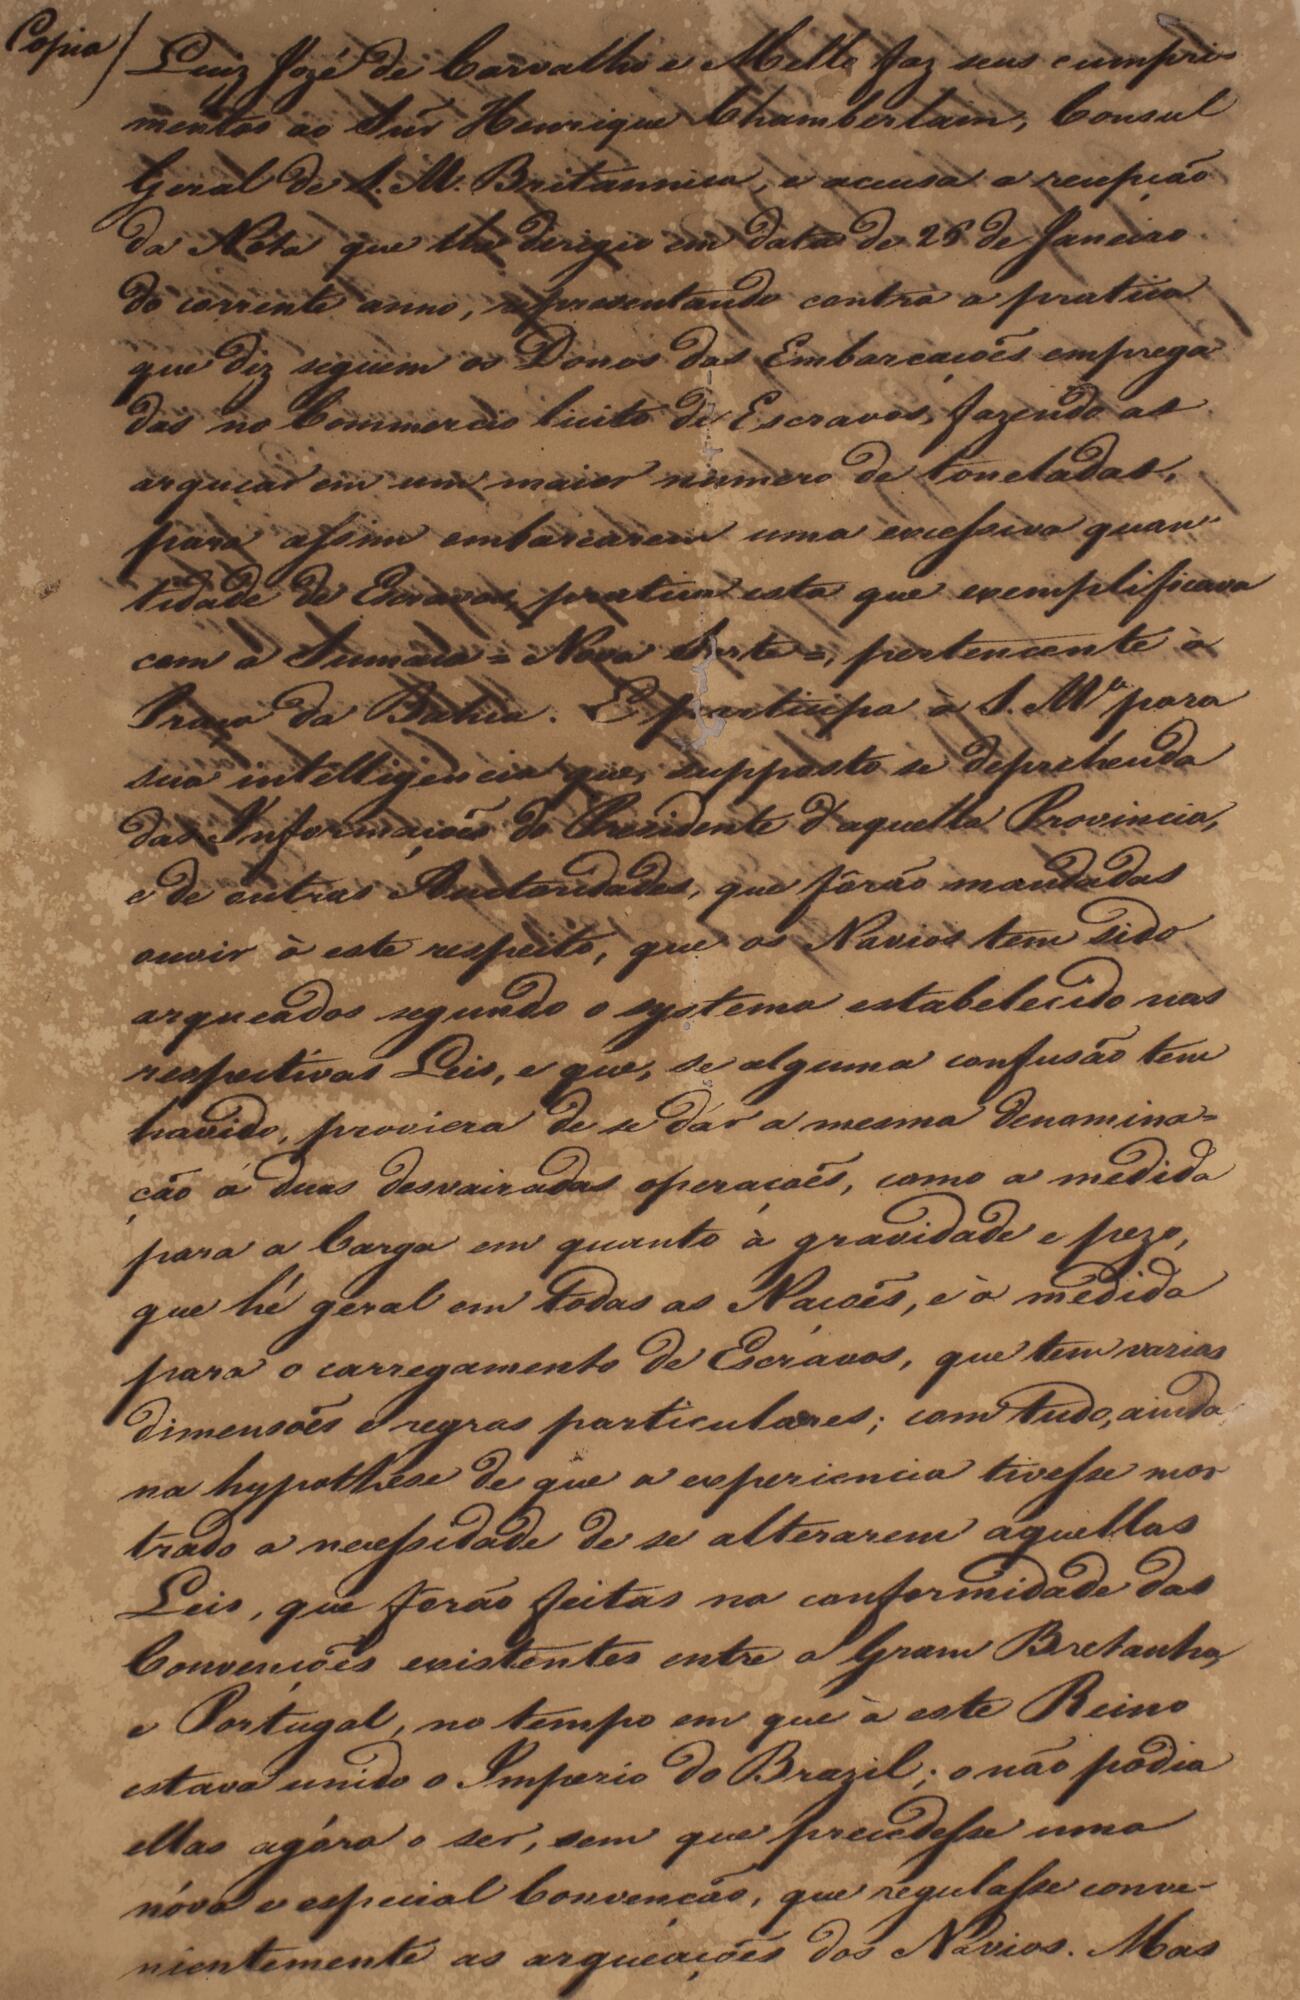 Copia/
Luiz Jozé de Carvalho e Mello faz seus cumpri-
mentos ao Snr̃ Henrique Chamberlain, Consul
Geral de S. M. Britannica, e accusa a recepção
da Nota que lhe derigio em data de 26 de Janeiro
do corrente anno, representando contra a pratica
que diz seguem os Donos das Embarcaçoẽs emprega
das no Commercio licito de Escravos, fazendo as
arquear em um maior número de toneladas,
para assim embarcarem uma excessiva quan-
tidade de Escravos, pratica esta que exemplificava
com a Sumaca = Nova Sorte =, pertencente à
Praça da Bahia. E participa à S. Mª para
sua intelligencia que, supposto se deprehenda
das Informaçoẽs do Presidente d'aquella Provincia,
e de outras Auctoridades, que fôrão mandadas
ouvir à este respeito, que os Navios tem sido
arqueados segundo o systema estabelecido nas
respectivas Leis, e que, se alguma confusão tem
havido, proviera de se dar a mesma denomina=
ção á duas desvairadas operaçoẽs, como a medida
para a Carga em quanto à gravidade e pezo,
que hé geral em todas as Naçoẽs, e à medida
para o carregamento de Escrávos, que tem varias
dimensoẽs e regras particulares; com tudo, ainda
na hypothese de que a experiencia tivesse mos
trado a necessidade de se alterarem aquellas
Leis, que forão feitas na conformidade das
Convençoẽs existentes entre a Gram Bretanha,
e Portugal, no tempo em que à este Reino
estava unido o Imperio do Brazil; o não podia
ellas agóra o ser, sem que precedesse uma
nóva e especial Convenção, que regulasse conve-
nientemente as arqueaçoẽs dos Navios. Mas